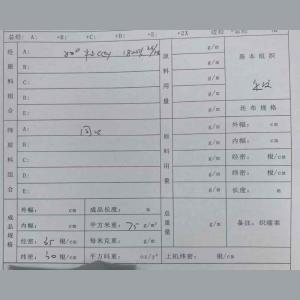 总经: A: +B: +C: +D: +E: +2X 边经
经 原 料 组 合
A:
B: g/m
C: g/m
D: g/m
E: g/m
原 料 用 量
基 本 组 织
坯 布 规 格
纬 原 料 组 合
A: 同上 g/m
B: g/m
C: g/m
D: g/m
E: g/m
原 料 用 量
外幅: cm
内幅: cm
经密: 根/cm
纬密: 根/cm
长度: m
成 品 规 格
外幅: cm 成品长度: m
内幅: cm 平方米重: 75 g/m²
经密: 65 根/cm 每米克重: g/m
纬密: 30 根/cm 平方码重: oz/y² 上机纬密: 根/cm
总 重 量
g/m
备注: 织缩率